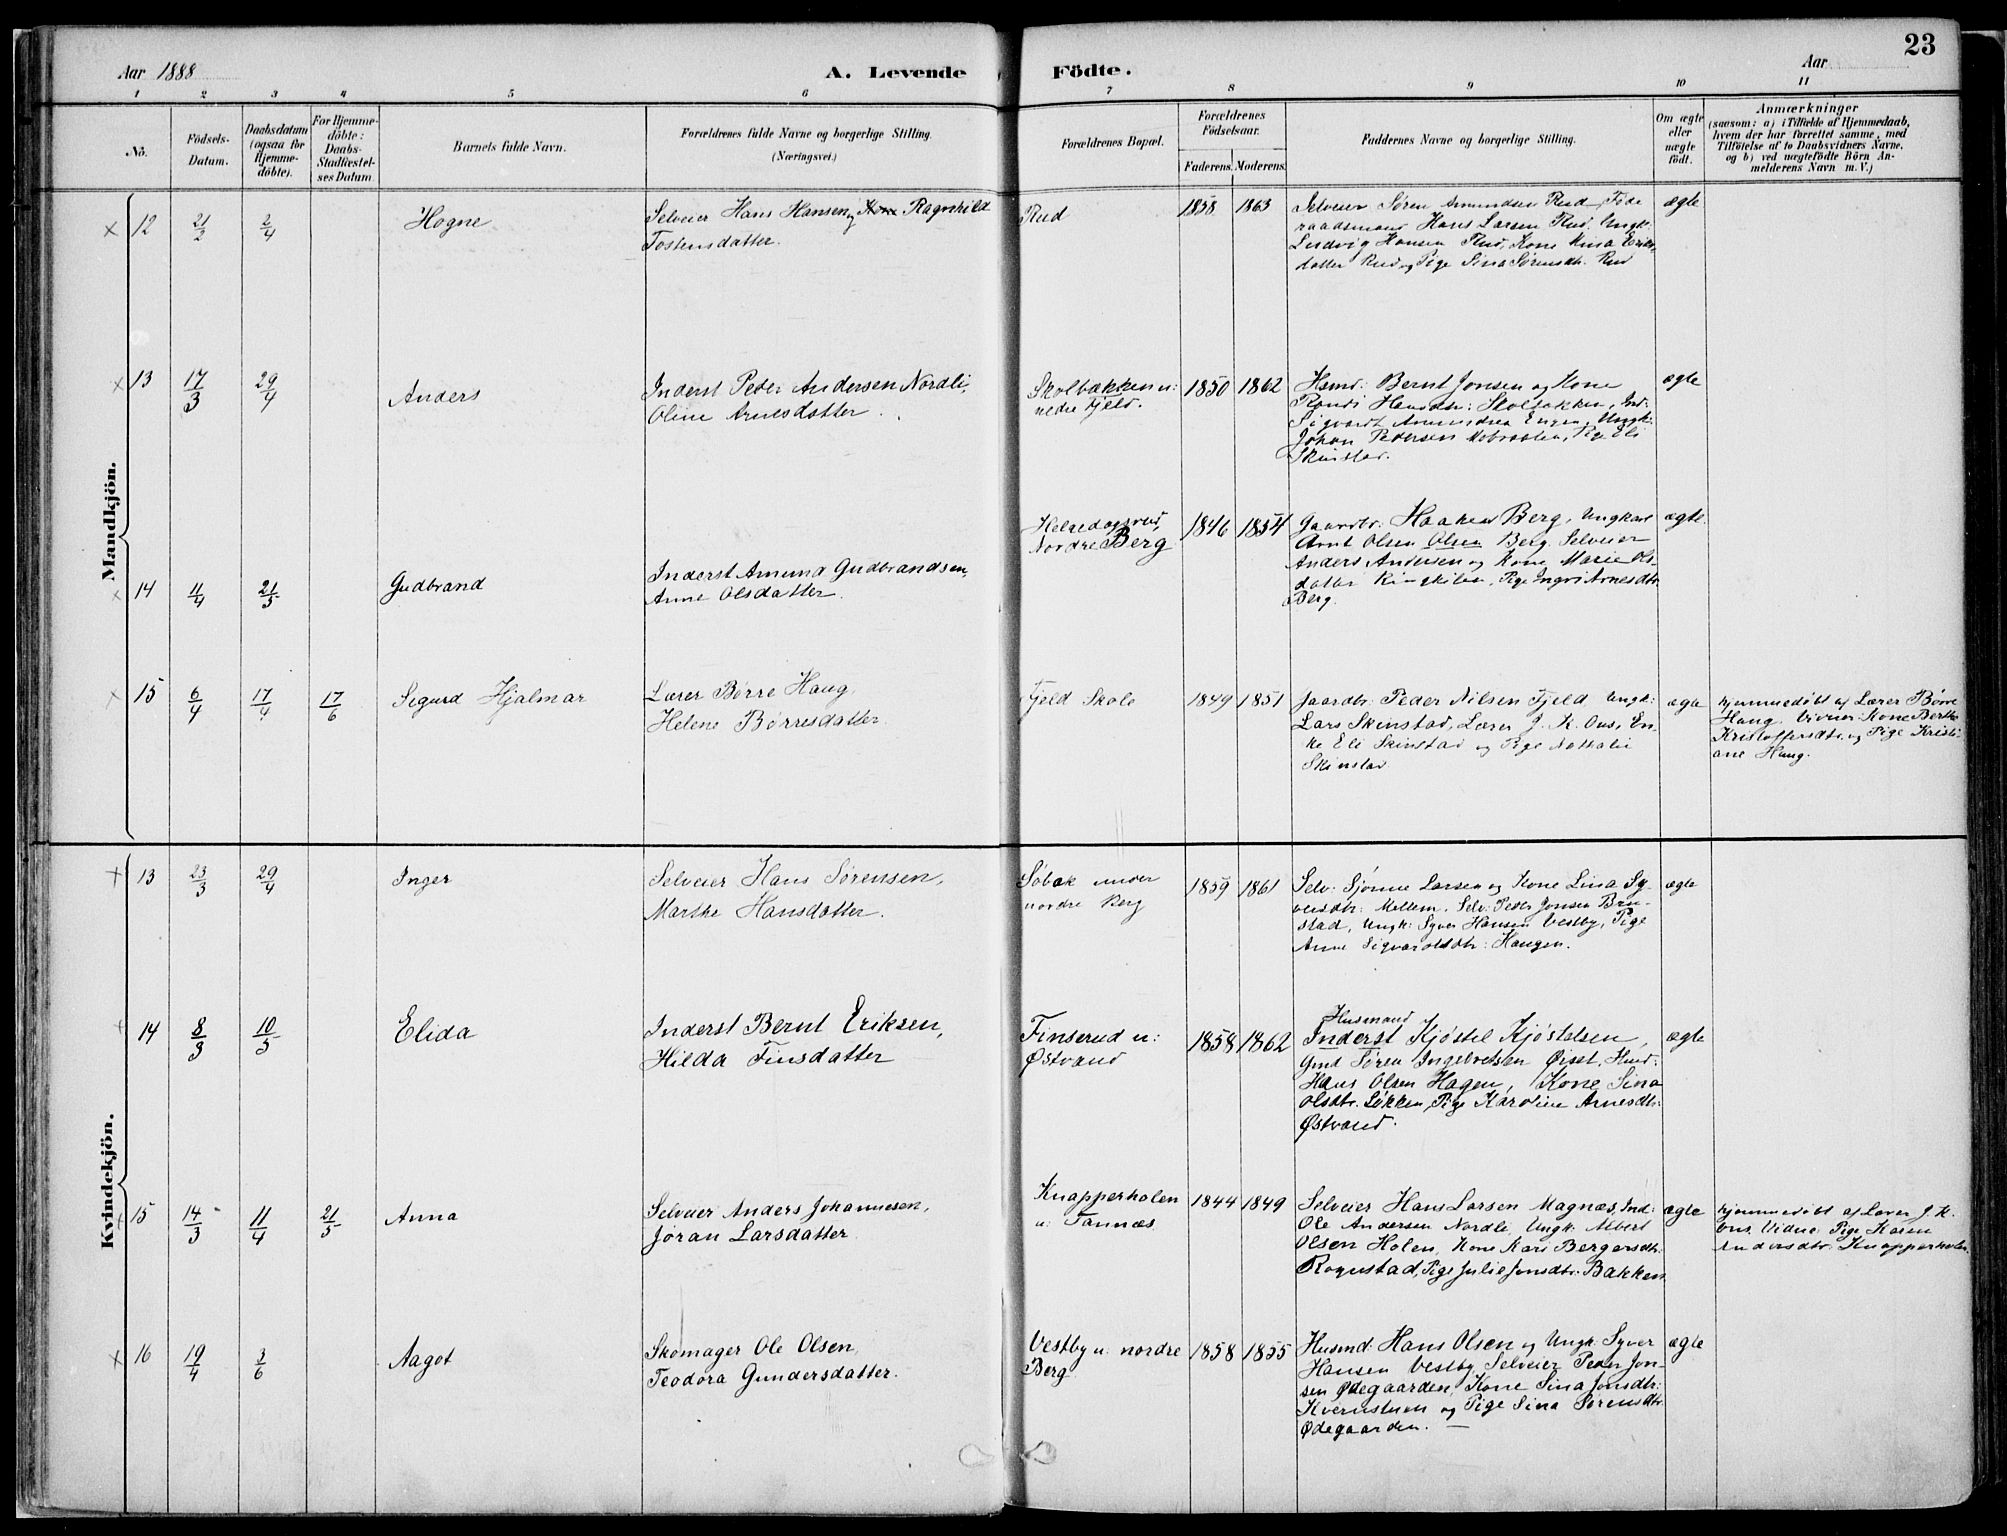 Aar 1888
A. Levende Födte.
Aar
23
1 2 3 4 5 6 7 8 9 10 11
No.
Födsels-
Datum.
Daabsdatum
(ogsaa for
Hjemme-
döbte).
For Hjemme-
döbte:
Daabs-
Stadfæstel-
ses Datum.
Barnets fulde Navn.
Forældrenes fulde Navne og borgerlige Stilling.
(Næringsvei.)
Forældrenes Bopæl.
Forældrenes
Födselsaar.
Faderens. Moderens.
Faddernes Navne og borgerlige Stilling.
Om ægte
eller
uægte
födt.
Anmærkninger
(saasom: a) i Tilfælde af Hjemmedaab,
hvem der har forrettet samme, med
Tilföielse af to Daabsvidners Navne,
og b) ved uægtefödte Börn An-
melderens Navn m. V.)
Mandkjön.
12 21/2 2/4 Hogne
Selveier Hans Hansen og Kone Ragnhild
Tostensdatter.
Rud
1858 1863
Selveier Søren Amundsen Rud, Føde
raadsmand Hans Larsen Rud, Ungk.
Ludvig Hansen Rud, Kone Stina Eriks-
datter Rud og Pige Sina Sørensdtr. Rud
ægte
13 17/3 29/4 Anders
Inderst Peder Andersen Nordli,
Oline Arnesdatter.
Skolbækken u:
nedre Fjeld.
1850 1862
Hsmd: Bernt Jonsen og Kone
Rondi Hansdtr: Skolbækken, Ind:
Sigvardt Amundsen Engen, Ungk:
Johan Pedersen Pige Eli
Skinstad.
ægte
14 11/4 21/5 Gudbrand
Inderst Amund Gudbrandsen,
Anne Olsdatter.
Nordre Berg
1846 1854
Gaardbr: Haaken Berg, Ungkarl
Arnt Olsen Olsen Berg. Selveier
Anders Andersen og Kone Marie Ols-
datter Pige Ingri Arnesdtr
Berg.
ægte
15 6/4 17/4 17/6 Sigurd Hjalmar
Lærer Børre Haug,
Helene Børresdatter.
Fjeld Skole
1849 1851
Gaardbr. Peder Nilsen Fjeld, Ungk:
Lars Skinstad, Lærer J. K. Ous, En-
ke Eli Skinstad og Pige Nathalie
Skinstad
ægte
hjemmedøbt af Lærer Børre
Haug. Vidner: Kone Berthe
Kristoffersdtr. og Pige Kristi-
ane Haug.
Kvindekjön.
13 23/3 29/4 Inger
Selveier Hans Sørensen,
Marthe Hansdatter.
Søbak under
nordre Berg
1859 1861
Selv: Sjønne Larsen og Kone Lina Sy-
versdtr: Mellem. Selv: Peder Jonsen Bru-
stad, Ungk: Syver Hansen Vestby, Pige
Anne Sigvardsdtr: Haugen.
ægte
14 8/3 10/5 Elida
Inderst Bernt Eriksen,
Hilda Finsdatter
Finserud u:
Østvand
1858 1862
Husmand
Inderst Kjøstel Kjøstelsen,
Gmd Søren Ingebretsen Ørset, Husd:
Hans Olsen Hagen, Kone Sina
Olsdtr. Løkken, Pige Karoline Arnesdtr:
Østvand.
ægte
15 14/3 11/4 21/5 Anna
Selveier Anders Johannesen,
Jøran Larsdatter
Knapperholen
u: Tannæs
1844 1849
Selveier Hans Larsen Magnæs, Ind:
Ole Andersen Nordli, Ungk: Albert
Olsen Holen, Kone Kari Bergersdtr:
Rognstad, Pige Julie Jonsdtr: Bakken
ægte
hjemmedøbt af Lærer J. K.
Ous. Vidne: Pige Karen
Andersdtr: Knapperholen.
16 19/4 3/6 Aagot
Skomager Ole Olsen,
Teodora Gundersdatter.
Vestby u: nordre
Berg
1858 1855
Husmd: Hans Olsen og Ungk: Syver
Hansen Vestby, Selveier Peder Jon-
sen Ødegaarden, Kone Sina Jonsdtr:
Kvernstuen og Pige Sina Sørensdtr
Ødegaarden. —
ægte